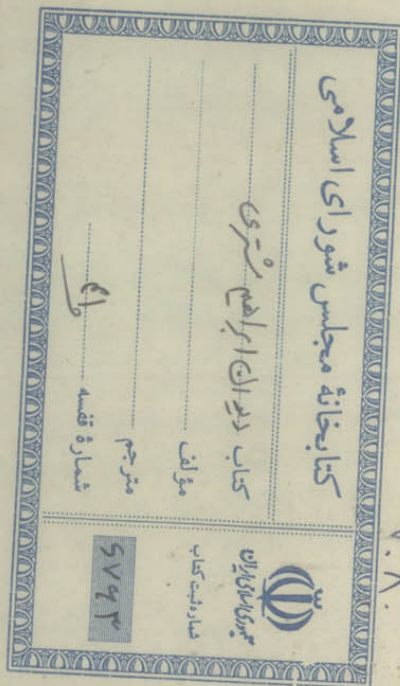 کتابخانهٔ مجلس شورای اسلامی
کتاب دیوان ابراهیم مشتری
مؤلف
مترجم
شمارهٔ قفسه
جمهوری اسلامی ایران
شماره ثبت کتاب
۶۷۹۳
۷۰۸